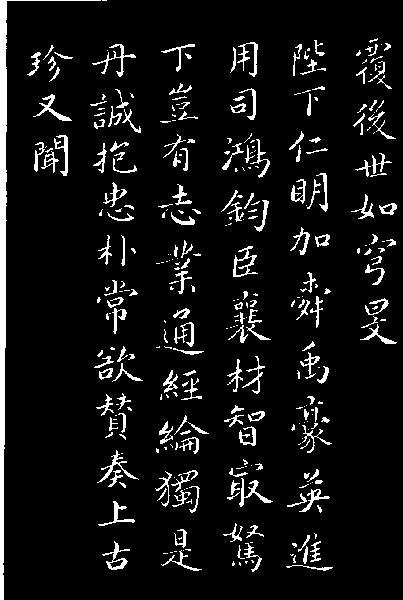 覆後世如穹旻
陛下仁明加舜禹豪英進
用司鴻鈞臣襄材智最駑
下豈有志業通經綸獨是
丹誠抱忠朴常欲贊奏上古
珍又聞